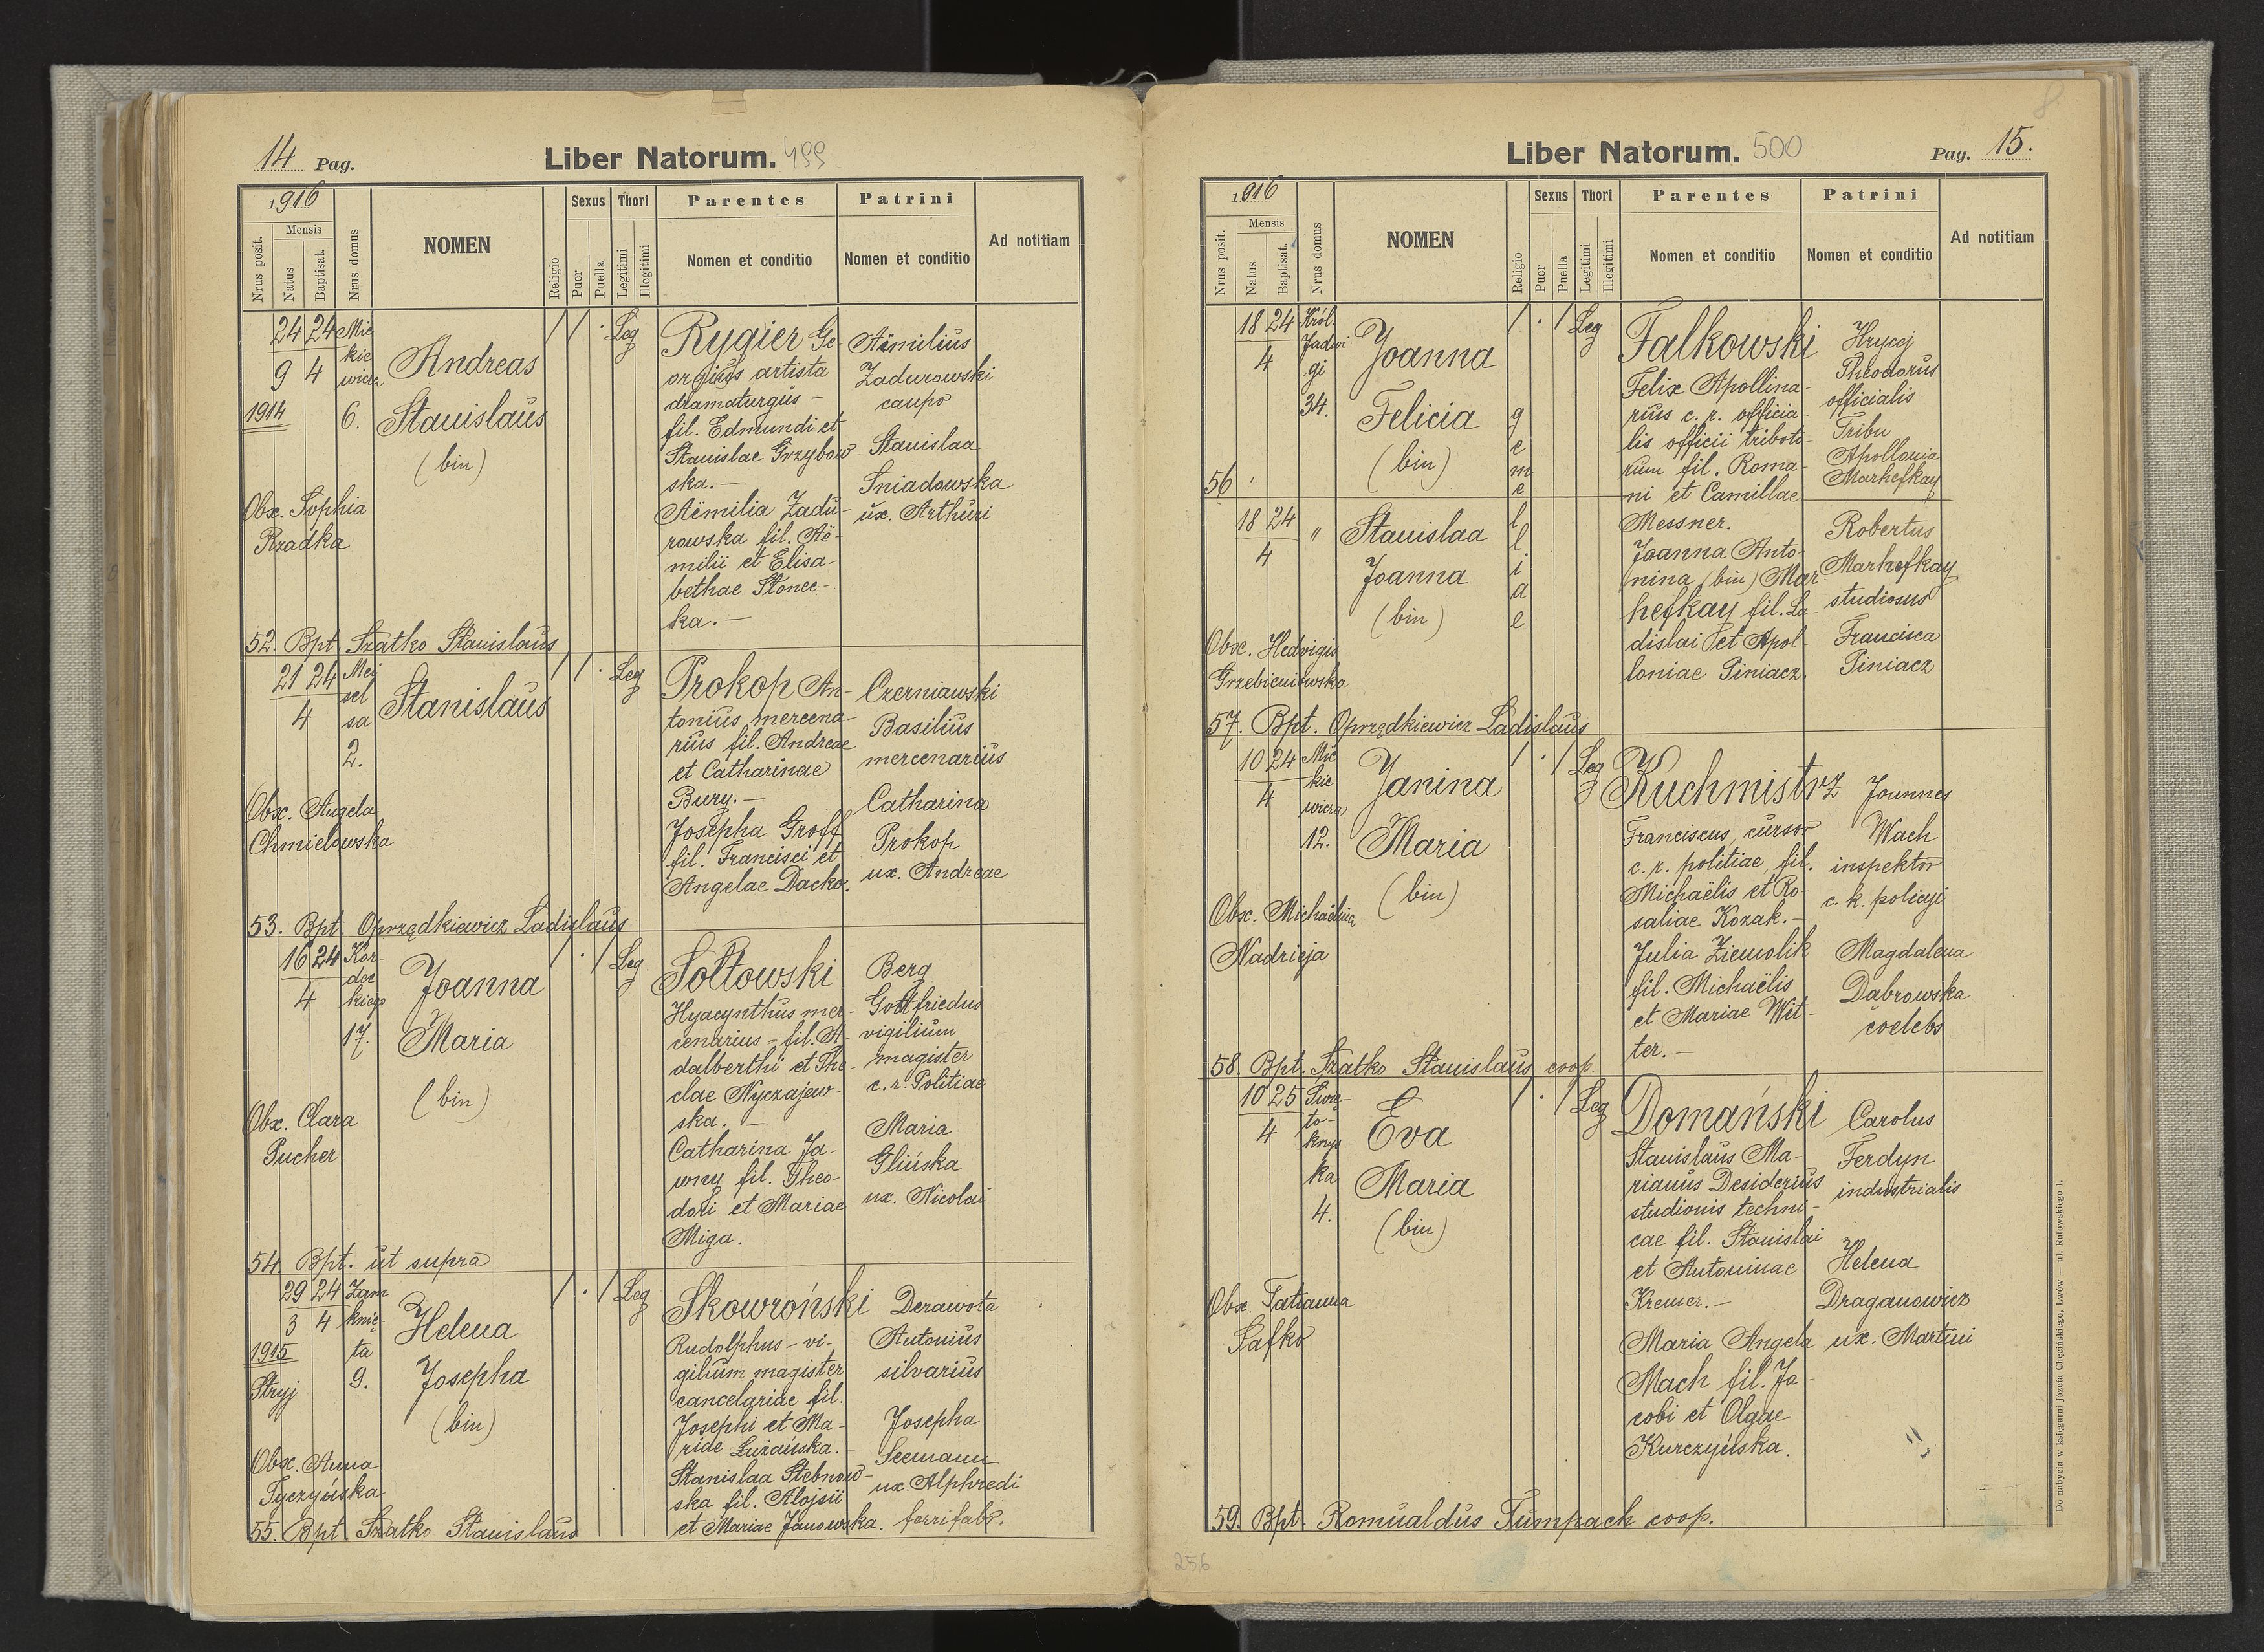 14 Pag.
Liber Natorum. 499
1916
Mensis
Nrus posit.
Natus
Baptisat.
Nrus domus
NOMEN
Religio
Sexus
Puer
Puella
Thori
Legitimi
Illegitimi
Parentes
Nomen et conditio
Patrini
Nomen et conditio
Ad notitiam
24 24 Mic
9 4 kie
wicza
1914 6.
Andreas
Stanislaus
(bin)
Obx. Sophia
Rzadka
/ / · Leg
Rygier Ge-
orgius artista
dramaturgus -
fil. Edmundi et
Stanislae Grzybow-
ska. -
Aëmilia Zadu-
rowska fil. Aë-
milii et Elisa-
bethae Słonec-
ka. -
Aëmilius
Zadurowski
caupo
Stanislaa
Sniadowska
ux. Arthuri
52. Bpt. Szatko Stanislaus
21 24 Mei
4 sel
sa
2.
Stanislaus
Obx. Angela
Chmielowska
/ / · Leg
Prokop An-
tonius mercena-
rius fil. Andreae
et Catharinae
Bury. -
Josepha Groff
fil. Francisci et
Angelae Dacko.
Czerniawski
Basilius
mercenarius
Catharina
Prokop
ux. Andreae
53. Bpt. Oprządkiewicz Ladislaus
16 24 Kor-
4 dec
kiego
17.
Joanna
Maria
(bin)
Obx. Clara
Pucher
/ · / Leg.
Sołtowski
Hyacynthus mer-
cenarius - fil. A-
dalberthi et The-
clae Nyczajew-
ska. -
Catharina Ja-
wny fil. Theo-
dori et Mariae
Miga.
Berg
Gottfriedus
vigilium
magister
c. r. Politiae
Maria
Glińska
ux. Nicolai
54. Bpt. ut supra
29 24 Zam
3 4 knię-
1915 ta
Stryj 9.
Helena
Josepha
(bin)
Obx. Anna
Tyczyńska
/ · / Leg
Skowroński
Rudolphus - vi-
gilium magister
cancelariae fil.
Josephi et Ma-
riae Łużańska. -
Stanislaa Stebnow-
ska fil. Alojsii
et Mariae Janowska.
Derawota
Antonius
silvarius
Josepha
Seemann
ux. Alphredi
ferrifabr.
55. Bpt. Szatko Stanislaus
Liber Natorum. 500
Pag. 15.
8
1916
Mensis
Nrus posit.
Natus
Baptisat.
Nrus domus
NOMEN
Religio
Sexus
Puer
Puella
Thori
Legitimi
Illegitimi
Parentes
Nomen et conditio
Patrini
Nomen et conditio
Ad notitiam
18 24 Król.
4 Jadwi
gi
34.
Joanna
Felicia
(bin)
56
/ · / Leg
gemellae
Falkowski
Felix Apollina-
rius c. r. officia-
lis officii tributo-
rum fil. Roma-
ni et Camillae
Messner.
Joanna Anto-
nina (bin) Mar-
hefkay fil. La-
dislai et Apol-
loniae Piniacz.
Hrycej
Theodorus
officialis
Tribu
Apollonia
Marhefkay
18 24 "
4
Stanislaa
Joanna
(bin)
Obx. Hedvigis
Grzebieniowska
Robertus
Marhefkay
studiosus
Francisca
Piniacz
57. Bpt. Oprządkiewicz Ladislaus
10 24 Mic
4 kie
wicza
12.
Janina
Maria
(bin)
Obx. Michaëlina
Nadrieja
/ · / Leg
Kuchmistrz
Franciscus, cursor
c. r. politiae, fil.
Michaëlis et Ro-
saliae Kozak. -
Julia Ziemolik
fil. Michaëlis
et Mariae Wit-
ter. -
Joannes
Wach
inspektor
c. k. policyi
Magdalena
Dabrowska
coelebs
58. Bpt. Szatko Stanislaus coop.
10 25 Swię-
4 to-
krzys
ka
4.
Eva
Maria
(bin)
Obx. Tatianna
Safko
/ · / Leg
Domański
Stanislaus Ma-
rianus Desiderius
studionis techni-
cae fil. Stanislai
et Antoninae
Kremer. -
Maria Angela
Mach fil. Ja-
cobi et Olgae
Kurczyńska.
Carolus
Ferdyn
industrialis
Helena
Draganowicz
ux. Martini
59. Bpt. Romualdus Tumpach coop.
256
Do nabycia w księgarni Józefa Chęcińskiego, Lwów — ul. Rutowskiego 1.